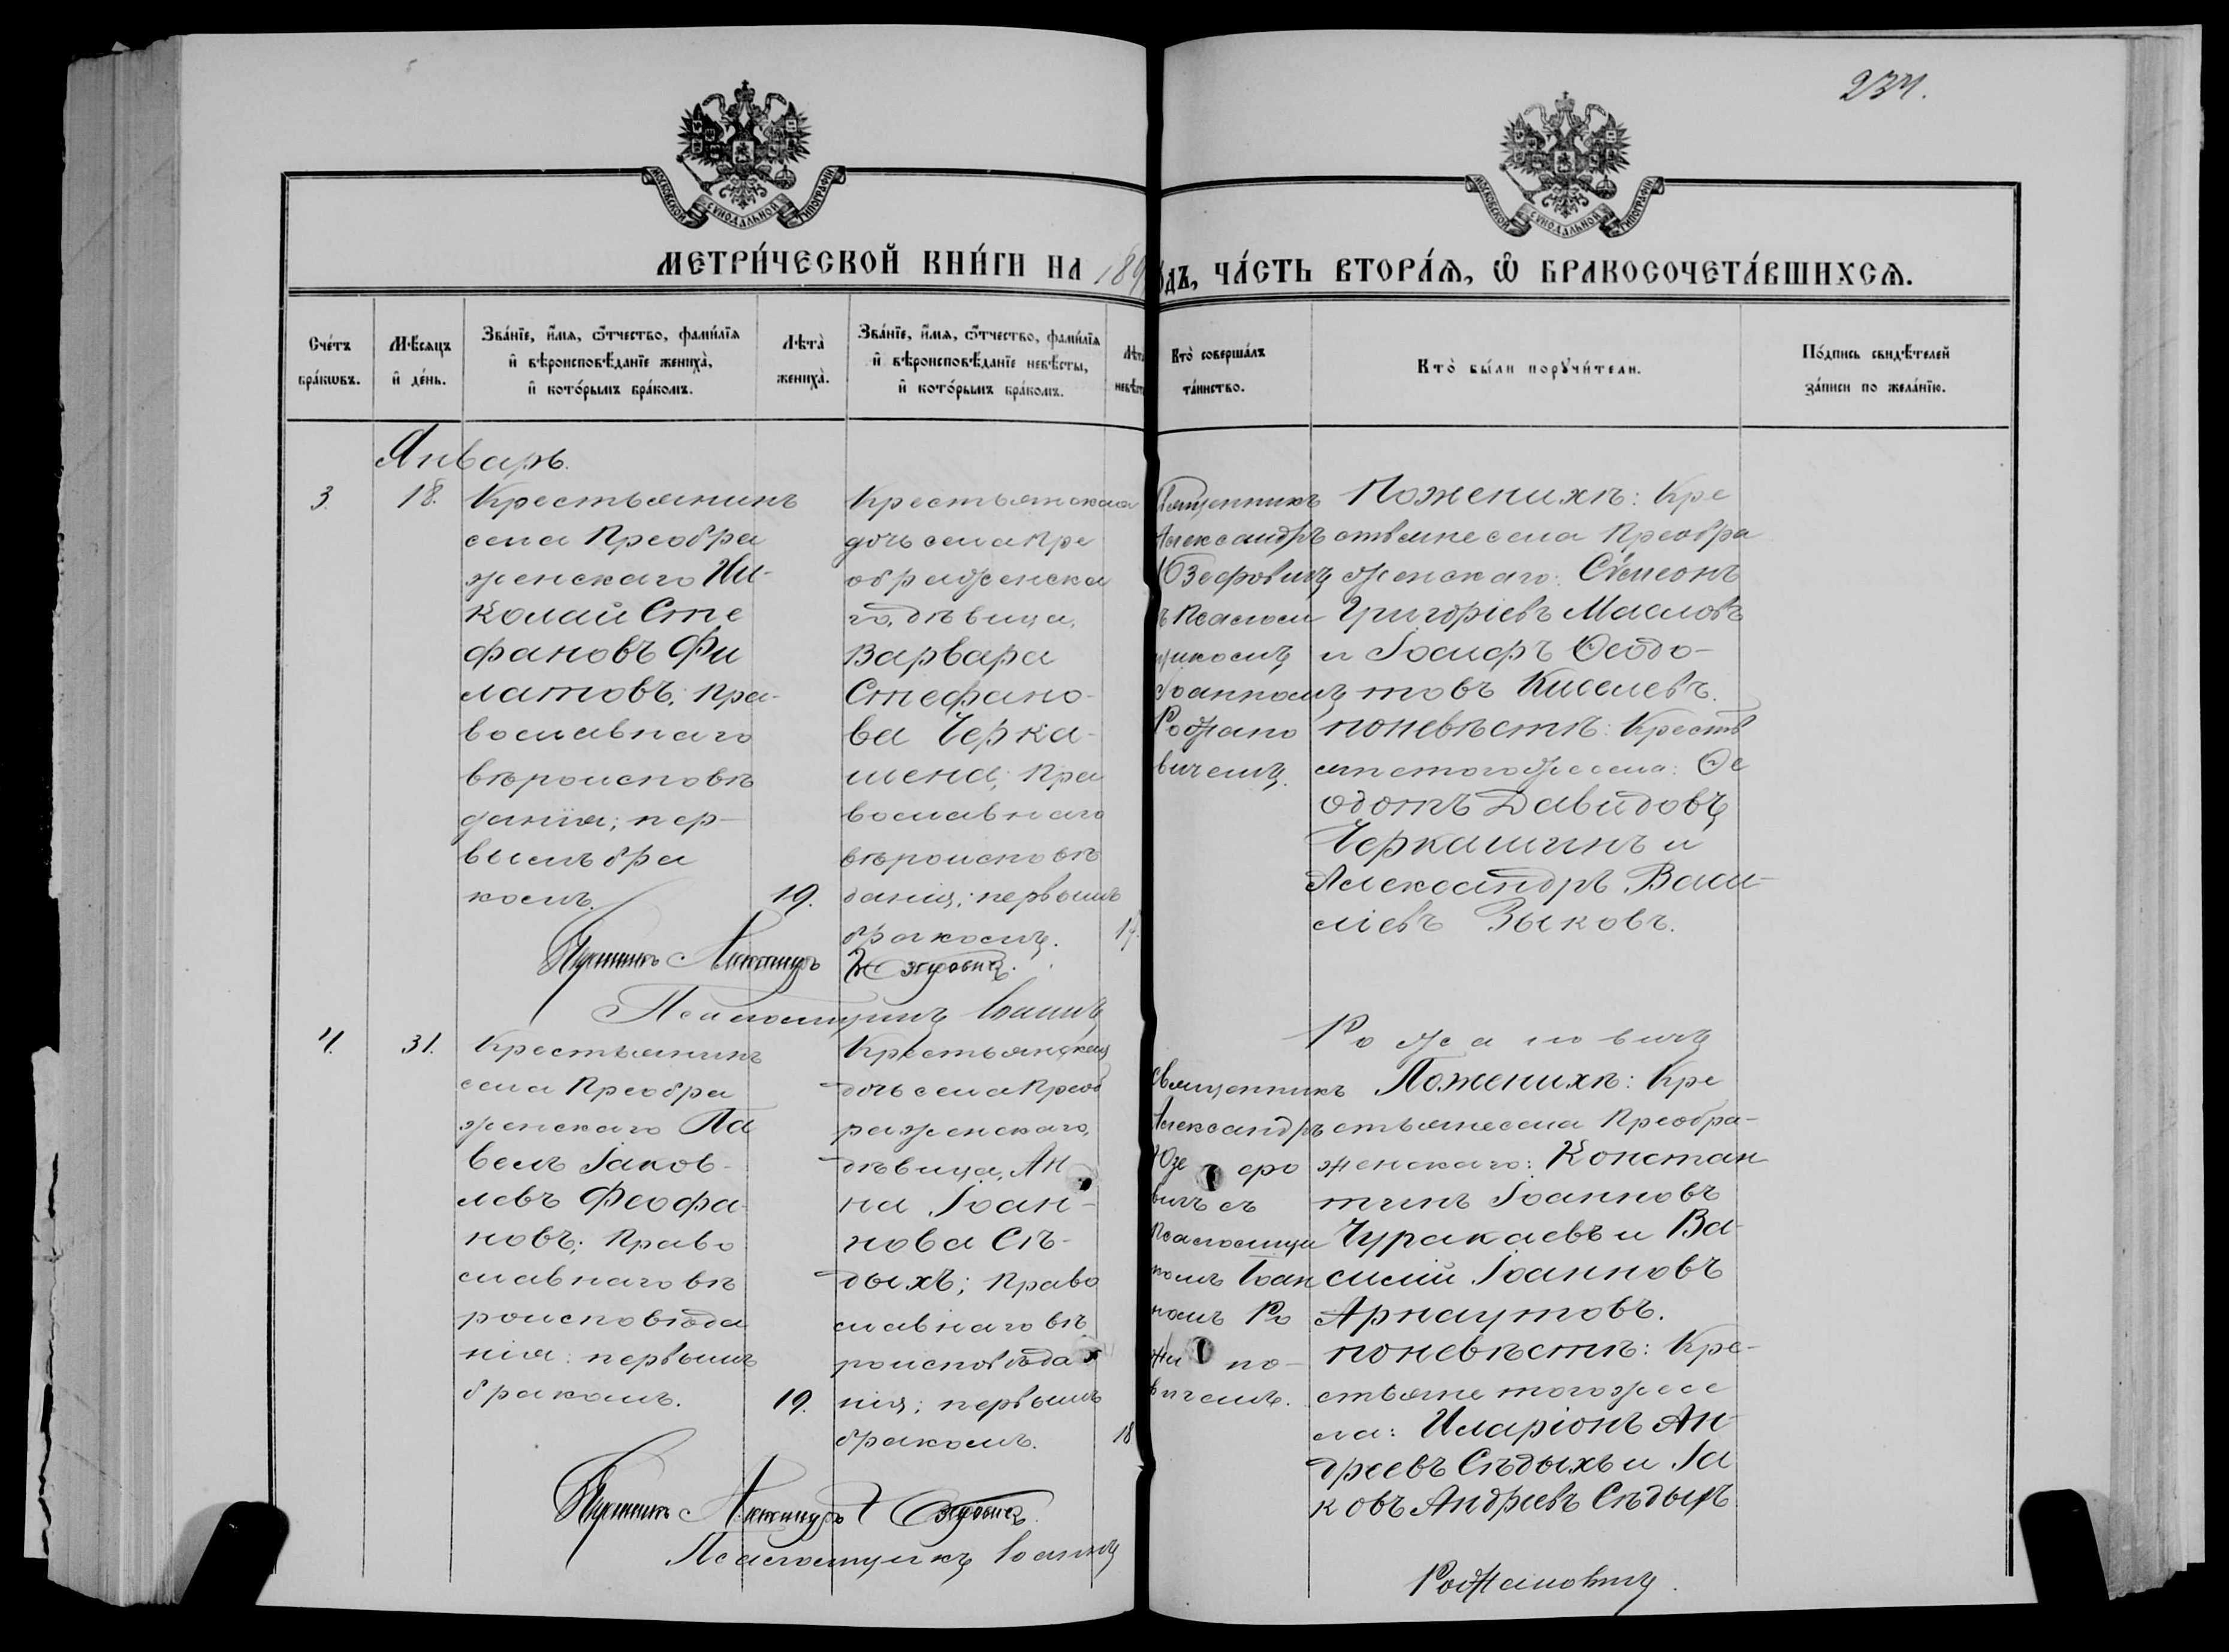 234.
МОСКОВСКОЙ СѴНОДАЛЬНОЙ ТИПОГРАФІИ
МОСКОВСКОЙ СѴНОДАЛЬНОЙ ТИПОГРАФІИ
МЕТРИ́ЧЕСКОЙ КНИ́ГИ НА 189
ОДЪ, ЧА́СТЬ ВТОРА́Ѧ, Ѡ҆ БРАКОСОЧЕТА́ВШИХСѦ.
Сче́тъ
бра́кѡвъ.
Мѣ́сѧцъ
и҆ де́нь.
Зва́нїе, и҆́мѧ, ѻ҆́тчество, фами́лїѧ
и҆ вѣроисповѣ́данїе жениха̀,
и҆ кото́рымъ бра́комъ.
Лѣта̀
жениха̀.
Зва́нїе, и҆́мѧ, ѻ҆́тчество, фами́лїѧ
и҆ вѣроисповѣ́данїе невѣ́сты,
и҆ кото́рымъ бра́комъ.
Лѣта
невѣст
Кто̀ соверша́лъ
та́инство.
Кто̀ бы́ли порꙋчи́тели.
По́дпись свидѣ́телей
за́писи по жела́нїю.
Январь.
3.
18.
Крестьянинъ
села Преобра
женскаго Ни-
колай Сте
фановъ Фи
латовъ; пра-
вославнаго
вѣроисповѣ
данія; пер-
вымъ бра
комъ.
19.
Крестьянская
дочь села Пре
ображенска
го, дѣвица,
Варвара
Стефано-
ва Черка-
шена; пра
вославнаго
вѣроисповѣ
данія; первымъ
бракомъ.
Священникъ
Александръ
Озеровичъ
ъ Псаломщ
Іоанномъ
Рожано
вичемъ.
Поженихѣ: Кре
стьяне села Преобра
женскаго: Сѵмеонъ
Григоріевъ Масловъ
и Іосифъ Ѳеодо-
товъ Киселевъ.
поневѣстѣ: Кресть
яне того же села: Ѳе
одотъ Давидовъ
Черкашинъ и
Александръ Васи-
ліевъ Зыковъ.
Священникъ Александръ Озеровичъ.
Псаломщикъ Іоаннъ
Рожановичъ
4.
31.
Крестьянинъ
села Преобра
женскаго Па
велъ Іаков-
левъ Феофа
новъ; право
славнаго вѣ
роисповѣда
нія: первымъ
бракомъ.
19.
Крестьянская
дочь села Преоб
раженскаго,
дѣвица, Ан
на Іоан-
нова Сѣ-
дыхъ; право
славнаго вѣ
роисповѣда
нія; первымъ
бракомъ.
18
Священникъ
Александръ
Озеро
вичъ съ
Псаломщи
комъ Іоан
номъ Ро
жано-
вичемъ.
Поженихѣ: Кре
стьяне села Преобра-
женскаго: Констан
тинъ Іоанновъ
Чуракаевъ и Ва-
силій Іоанновъ
Арнаутовъ.
поневѣстѣ: Кре-
стьяне того же се
ла: Иларіонъ Ан-
дреевъ Сѣдыхъ и Іа
ковъ Андреевъ Сѣдыхъ
Священникъ Александръ Озеровичъ.
Псаломщикъ Іоаннъ
Рожановичъ.